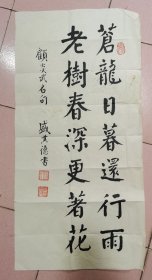 蒼龍日暮還行雨
老樹春深更著花
顧炎武名句
盛其德書